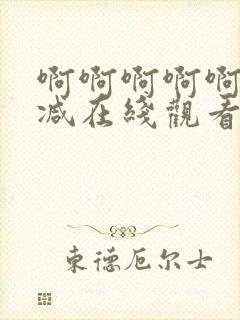 啊啊啊啊啊
减在綫觀看
東德厄尔士